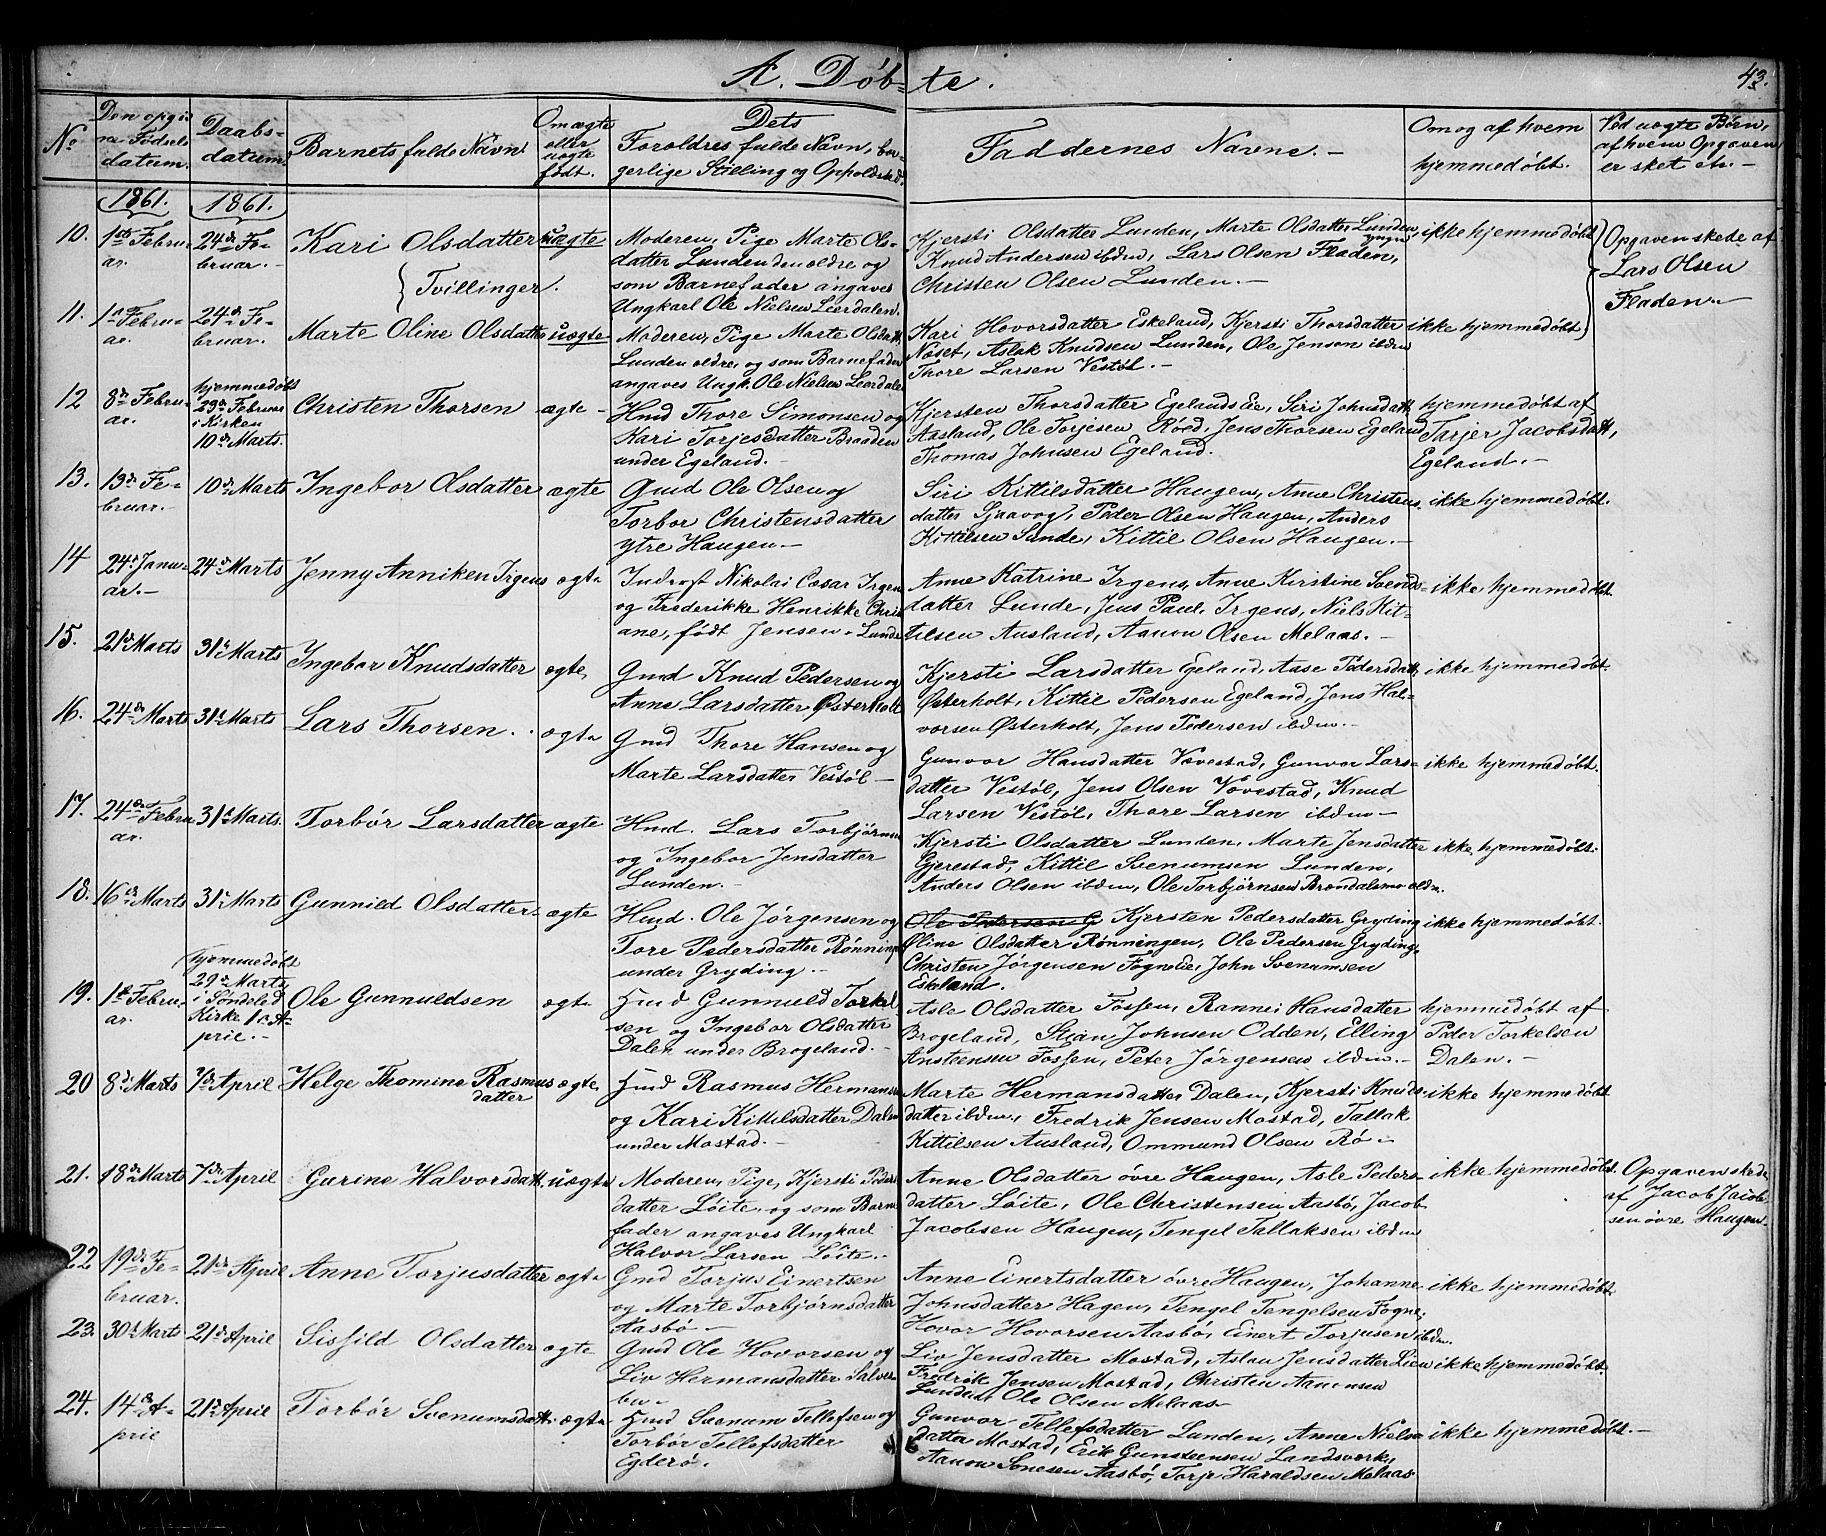 A. Døbte.
43.
No
Den opgivne Fødselsdatum.
Daabsdatum.
Barnets fulde Navn.
Om ægte eller uægte født.
Dets Foreldres fulde Navn, borgerlige Stilling og Opholdssted.
Faddernes Navne.
Om og af hvem hjemmedøbt.
Ved uægte Børn, af hvem Opgaven er sket etc.
1861.
1861.
10.
1ste Februar.
24de Februar.
Kari Olsdatter
uægte
Moderen, Pige Marte Olsdatter Lunden den ældre og
som Barnefader angaves
Ungkarl Ole Nielsen Leerdalen.
Kjersti Olsdatter Lunden, Marte Olsdatter Lunden yngre
Knud Andersen ibidem, Lars Olsen Fladen,
Christen Olsen Lunden.
ikke hjemmedøbt
Opgaven skede af
Lars Olsen
Fladen.
Tvillinger.
11.
1ste Februar.
24de Februar.
Marte Oline Olsdatter
uægte
Moderen, Pige Marte Olsdatt.
Lunden ældre, og som Barnefader
angaves Ungk. Ole Nielsen Leerdalen
Kari Hovorsdatter Eskeland, Kjersti Thorsdatter
Næset, Aslak Knudsen Lunden, Ole Jensen ibidem
Thore Larsen Vestøl.
ikke hjemmedøbt
12
8de Februar.
hjemmedøbt
Februar
i Kirken
10de Marts.
Christen Thorsen
ægte
Hmd Thore Simonsen og
Kari Torjesdatter Braaden
under Egeland.
Kjersten Thorsdatter Egelands Eie, Siri Johnsdatt.
Aasland, Ole Torjesen Røed, Jens Thorsen Egeland
Thomas Johnsen Egeland.
hjemmedøbt af
Tarjer Jacobsdatt,
Egeland.
13.
13de Februar.
10de Marts
Ingebor Olsdatter
ægte
Gmd Ole Olsen og
Torbor Christensdatter
ytre Haugen.
Siri Kittilsdatter Haugen, Anne Christensdatter Sjaavog, Peder Olsen Haugen, Anders
Kittilsen Sunde, Kittil Olsen Haugen.
ikke hjemmedøbt.
14
24de Januar.
24de Marts
Jenny Anniken Irgens
ægte
Indregst Nikolai Cæsar Irgens
og Frederikke Henrikke Christiane, født Jensen, Lunde
Anne Katrine Irgens, Anne Kirstine Svendsdatter Lunde, Jens Paul Irgens, Niels Kittilsen Ausland, Aanon Olsen Melaas.
ikke hjemmedøbt.
15.
21de Marts
31te Marts
Ingebor Knudsdatter
ægte
Gmd Knud Pedersen og
Anne Larsdatter Østerholt
Kjersti Larsdatter Egeland, Aase Pedersdatt.
Østerholt, Kittil Pedersen Egeland, Jens Halvorsen Østerholt, Jens Pedersen ibidem.
ikke hjemmedøbt.
16.
24de Marts
31te Marts
Lars Thorsen
ægte
Gmd Thore Hansen og
Marte Larsdatter Vestøl
Gunvor Hansdatter Vævestad, Gunvor Larsdatter Vestøl, Jens Olsen Vævestad, Knud
Larsen Vestøl, Thore Larsen ibidem
ikke hjemmedøbt.
17.
24de Februar.
31te Marts.
Torbør Larsdatter
ægte
Hmd. Lars Torbjørnsen
og Ingebor Jensdatter
Lunden.
Kjersti Olsdatter Lunden, Marte Jensdatter
Gjerestad, Kittil Svenumsen Lunden,
Anders Olsen ibidem, Ole Torbjørnsen Brøndalsmo
ikke hjemmedøbt.
18.
16de Marts
31te Marts
Gunnild Olsdatter
ægte
Hmd. Ole Jørgensen og
Tore Pedersdatter Rønningen
under Gryding.
Ole Pedersen G Kjersten Pedersdatter Gryding
Oline Olsdatter Rønningen, Ole Pedersen Gryding,
Christen Jørgensen Fogneie, John Svenumsen
Eskeland.
ikke hjemmedøbt.
19.
1ste Februar.
Hjemmedøbt
29de Marts
i Søndeled
Kirke 1ste April.
Ole Gunnuldsen
ægte
Hmd Gunnuld Torkelsen og Ingebor Olsdatter
Dalen under Brogeland.
Asle Olsdatter Fossen, Rannei Hansdatter
Brogeland, Stian Johnsen Odden, Elling
Anstensen Fossen, Peter Jørgensen ibidem.
hjemmedøbt af
Peder Torkelsen
Dalen.
20
8de Marts
7de April
Helge Thomine Rasmusdatter
ægte
Hmd Rasmus Hermansen
og Kari Kittilsdatter Dalen
under Mostad.
Marte Hermansdatter Dalen, Kjersti Knudsdatter ibidem, Fredrik Jensen Mostad, Tallak
Kittilsen Ausland, Ommund Olsen Rø
ikke hjemmedøbt
21.
18de Marts
7de April
Gurine Halvorsdatt.
uægte
Moderen, Pige, Kjersti Pedersdatter Løite, og som Barnefader angaves Ungkarl
Halvor Larsen Løite.
Anne Olsdatter øvre Haugen, Asle Pedersdatter Løite, Ole Christensen Aasbø, Jacob
Jacobsen Haugen, Tengel Tallaksen ibidem
ikke hjemmedøbt.
Opgaven skede
af Jacob Jacobsen øvre Haugen.
22
19de Februar.
21de April
Anne Torjusdatter
ægte
Gmd Torjus Einertsen
og Marte Torbjørnsdatter
Aasbø
Anne Einertsdatter øvre Haugen, Johanne
Johnsdatter Hagen, Tengel Tengelsen Fogne,
Hovor Hovorsen Aasbø, Einert Torjusen ibidem.
ikke hjemmedøbt
23.
30te Marts
21de April
Sisfild Olsdatter
ægte
Gmd Ole Hovorsen og
Liv Hermansdatter
Liv Jensdatter Mostad, Aslau Jensdatter Lien
Fredrik Jensen Mostad, Christen Aanonsen
Lunden, Ole Olsen Melaas
ikke hjemmedøbt.
24.
14de April
21de April
Torbør Svenumsdatt.
ægte
Hmd Svenum Tellefsen og
Torbør Tellefsdatter
Egderø.
Gunvor Tellefsdatter Lunden, Anne Nielsdatter Mostad, Erik Gunsteensen Landsverk,
Aanon Sonesen Aasbø, Torje Haraldsen Melaas
ikke hjemmedøbt.